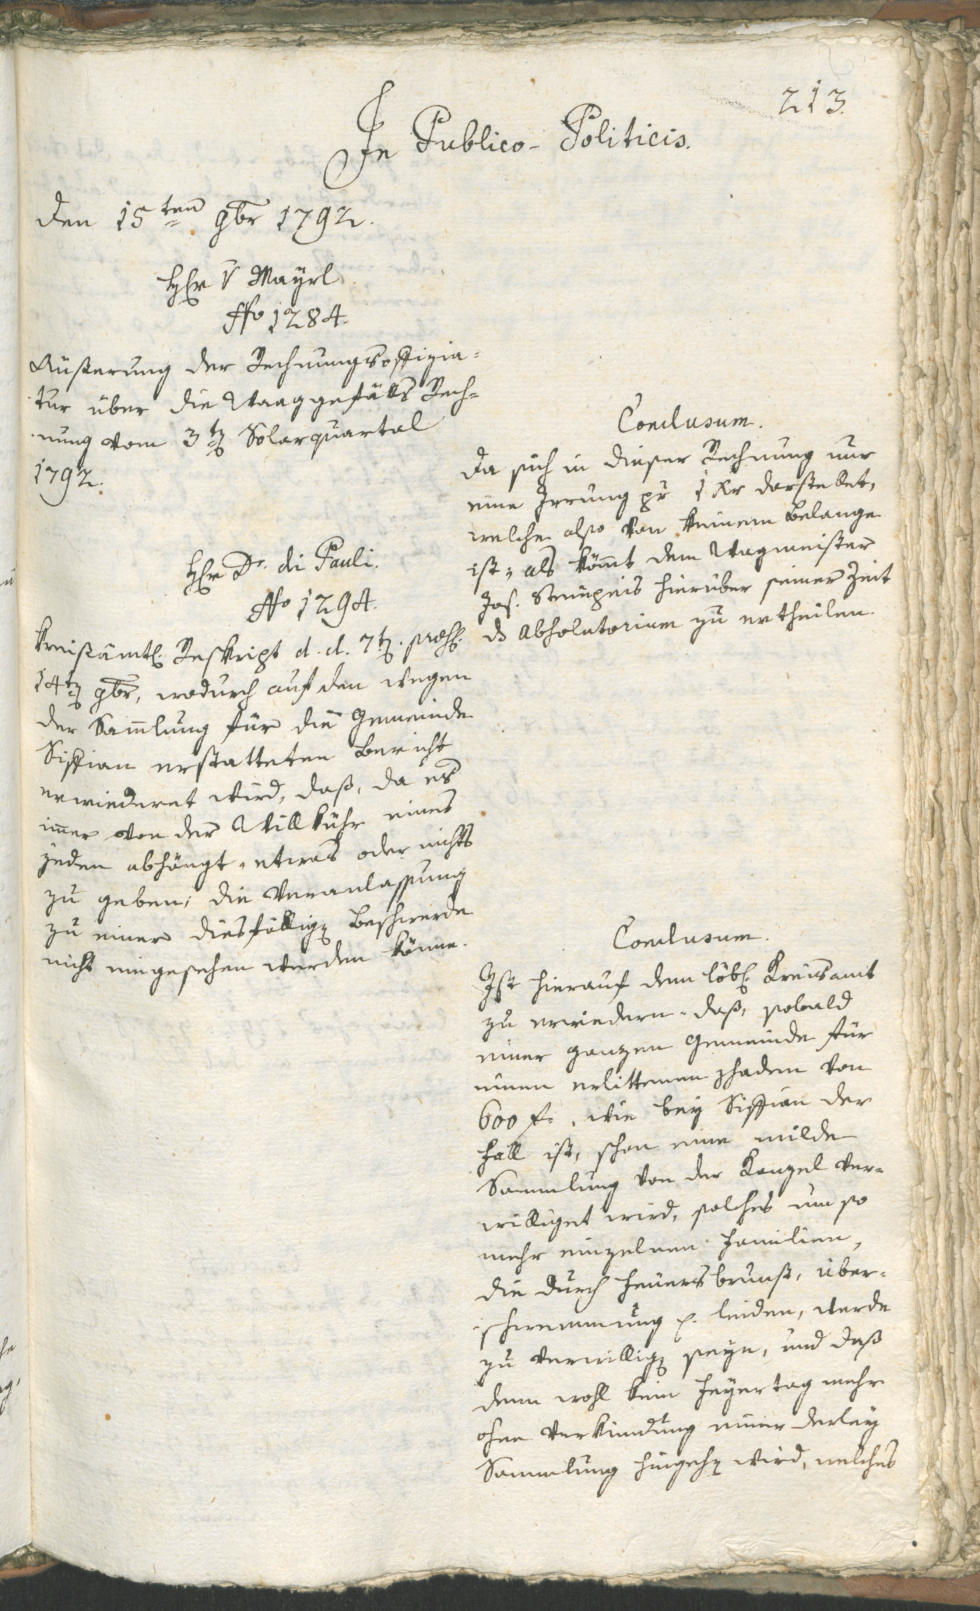 213.
In Publico-Politicis.
Den 15ten 9br 1792.
Hr v Mayrl
No 1284.
Äußerung der Rechnungsoffizia-
tur über die Waaggefälls Rech-
nung vom 3tn Solarquartal
1792.
Conclusum.
Da sich in dieser Rechnung nur
eine Irrung pr 1 Kr darstellet,
welche also von keinem Belange
ist; als kömt dem Wagmeister
Jos. hierüber seiner Zeit
ds Absolutorium zu ertheilen.
Hr Dr. di Pauli.
No 1294.
Kreisämtl. Reskript d. d. 7tn. præs.
14tn 9br, wodurch auf den wegen
der Samlung für die Gemeinde
Siffian erstatteten Bericht
erwiedert wird, daß, da es
imer von der Willkühr eines
jeden abhängt, etwas oder nichts
zu geben, die Veranlassung
zu einer diesfällign Beschwerde
nicht eingesehen werden könne.
Conclusum.
Ist hierauf dem löbl. Kreisamt
zu erwiedern, daß, sobald
einer ganzen Gemeinde für
einen erlittenen schaden von
600 f., wie bey Siffian der
Fall ist, schon eine milde
Sammlung von der Kanzel ver-
williget wird, solches um so
mehr einzelnen Familien,
die durch Feuersbrunst, über-
schwemmung p. leiden, werde
zu verwillign seyn, und daß
denn wohl kein Feyertag mehr
ohne Verkündung einer derley
Sammlung hingehn wird, welches